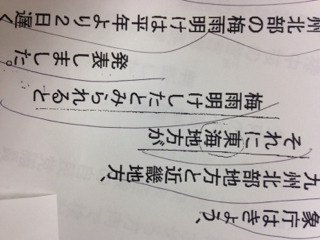 象庁はきょう、
九州北部地方と近畿地方、
それに東海地方が
梅雨明けしたとみられると
発表しました。
州北部の梅雨明けは平年より２日遅く